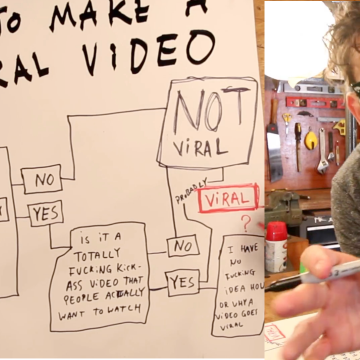 TO MAKE A
RAL VIDEO
NOT
VIRAL
NO
PROBABLY
VIRAL
YES
?
IS IT A
TOTALLY
FUCKING KICK-
ASS VIDEO THAT
PEOPLE ACTUALLY
WANT TO WATCH
NO
YES
I HAVE
NO
FUCKING
IDEA HOW
OR WHY A
VIDEO GOES
VIRAL